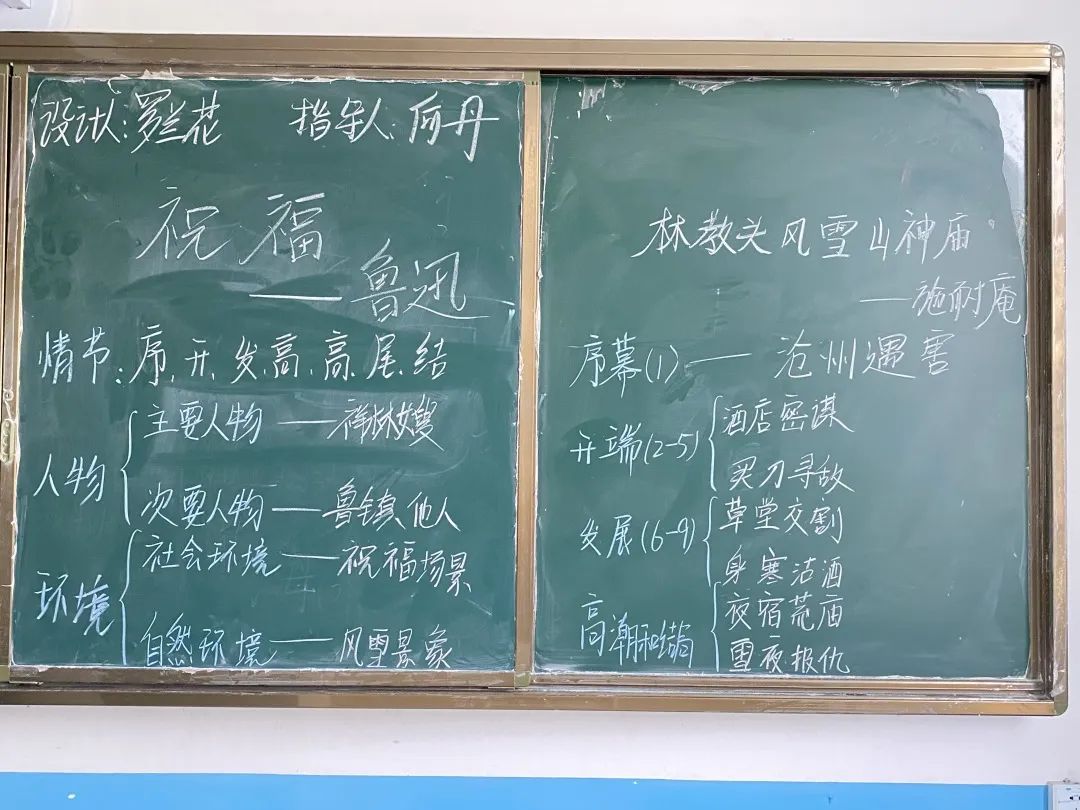 设计人:罗兰花 指导人:何丹
祝福
——鲁迅
情节:序、开、发、高、高、尾、结
人物
主要人物——祥林嫂
次要人物——鲁镇、他人
环境
社会环境——祝福场景
自然环境——风雪景象
林教头风雪山神庙
——施耐庵
序幕(1)——沧州遇害
开端(2-5)
酒店密谋
买刀寻敌
发展(6-9)
草堂交割
身寒沽酒
高潮和结局
夜宿荒庙
雪夜报仇